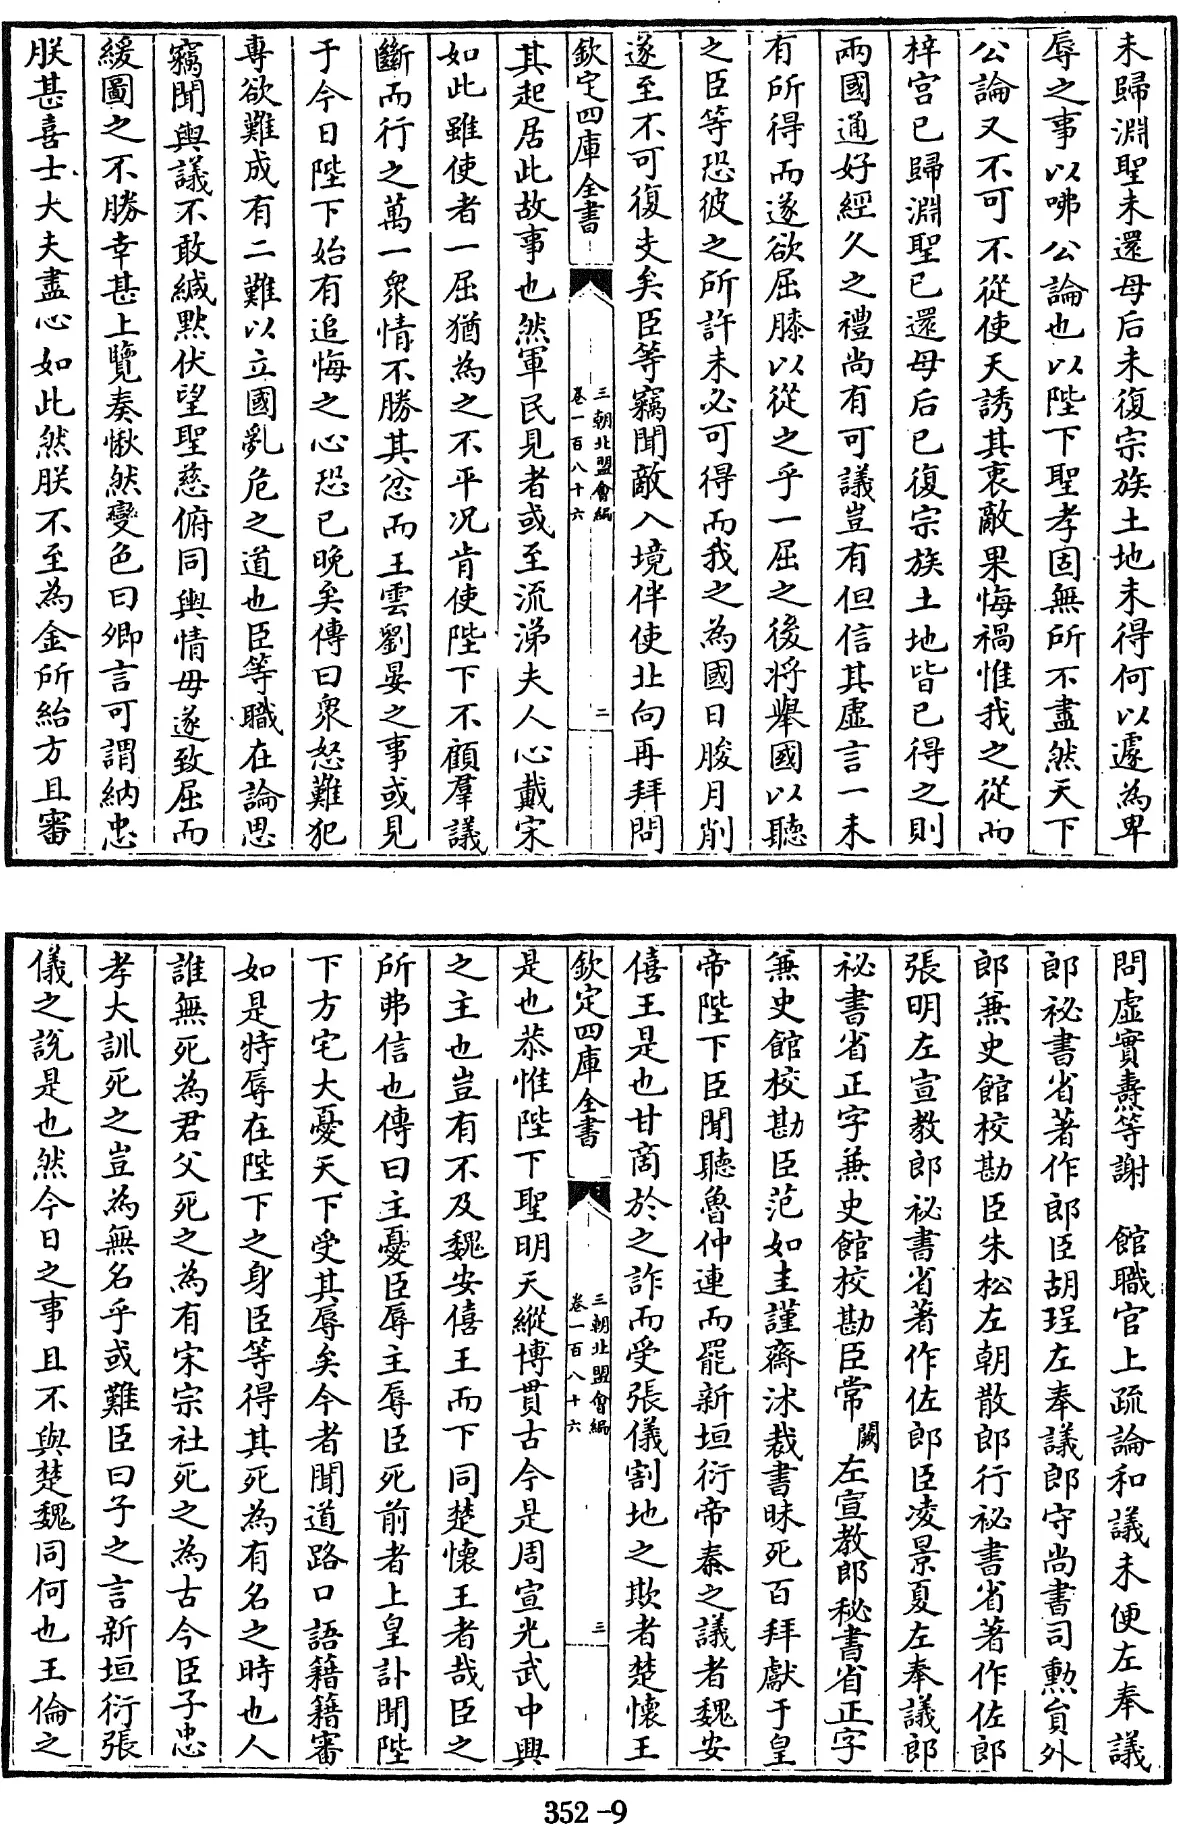 未歸淵聖未還母后未復宗族土地未得何以遽為卑
辱之事以咈公論也以陛下聖孝固無所不盡然天下
公論又不可不從使天誘其衷敵果悔禍惟我之從而
梓宫已歸淵聖已還母后已復宗族土地皆已得之則
兩國通好經久之禮尚有可議豈有但信其虚言一未
有所得而遂欲屈膝以從之乎一屈之後將舉國以聽
之臣等恐彼之所許未必可得而我之為國日朘月削
遂至不可復支矣臣等竊聞敵入境伴使北向再拜問
欽定四庫全書
三朝北盟會編
卷一百八十六
二
其起居此故事也然軍民見者或至流涕夫人心戴宋
如此雖使者一屈猶為之不平况肯使陛下不顧羣議
斷而行之萬一衆情不勝其忿而王雲劉晏之事或見
于今日陛下始有追悔之心恐已晚矣傳曰衆怒難犯
專欲難成有二難以立國亂危之道也臣等職在論思
竊聞輿議不敢緘默伏望聖慈俯同輿情毋遂致屈而
緩圖之不勝幸甚上覽奏愀然變色曰卿言可謂納忠
朕甚喜士大夫盡心如此然朕不至為金所紿方且審
問虚實燾等謝　館職官上疏論和議未便左奉議
郎秘書省著作郎臣胡珵左奉議郎守尚書司勲員外
郎兼史館校勘臣朱松左朝散郎行秘書省著作佐郎
張明左宣教郎秘書省著作佐郎臣凌景夏左奉議郎
秘書省正字兼史館校勘臣常闕左宣教郎秘書省正字
兼史館校勘臣范如圭謹齋沐裁書昧死百拜獻于皇
帝陛下臣聞聽魯仲連而罷新垣衍帝秦之議者魏安
僖王是也甘商於之詐而受張儀割地之欺者楚懷王
欽定四庫全書
三朝北盟會編
卷一百八十六
三
是也恭惟陛下聖明天縱博貫古今是周宣光武中興
之主也豈有不及魏安僖王而下同楚懷王者哉臣之
所弗信也傳曰主憂臣辱主辱臣死前者上皇訃聞陛
下方宅大憂天下受其辱矣今者聞道路口語籍籍審
如是特辱在陛下之身臣等得其死為有名之時也人
誰無死為君父死之為有宋宗社死之為古今臣子忠
孝大訓死之豈為無名乎或難臣曰子之言新垣衍張
儀之説是也然今日之事且不與楚魏同何也王倫之
352-9